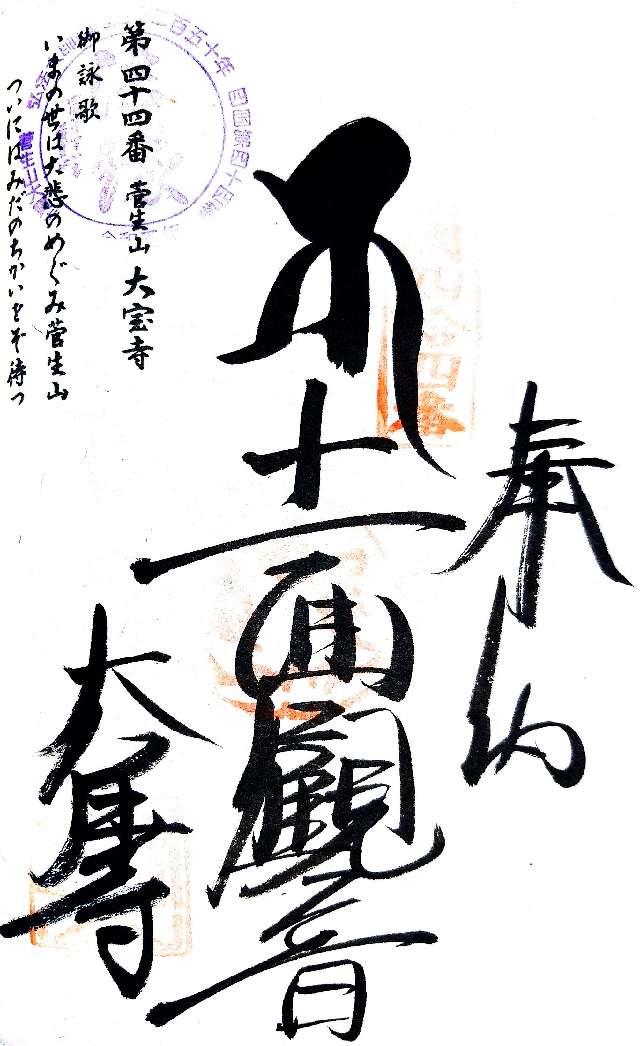 奉納
十一面觀音
大寳寺
第四十四番 菅生山 大宝寺
御詠歌
いまの世は大悲のめぐみ菅生山
ついにはみだのちかいをぞ待つ
百五十年 四国第四十四番
菅生山大